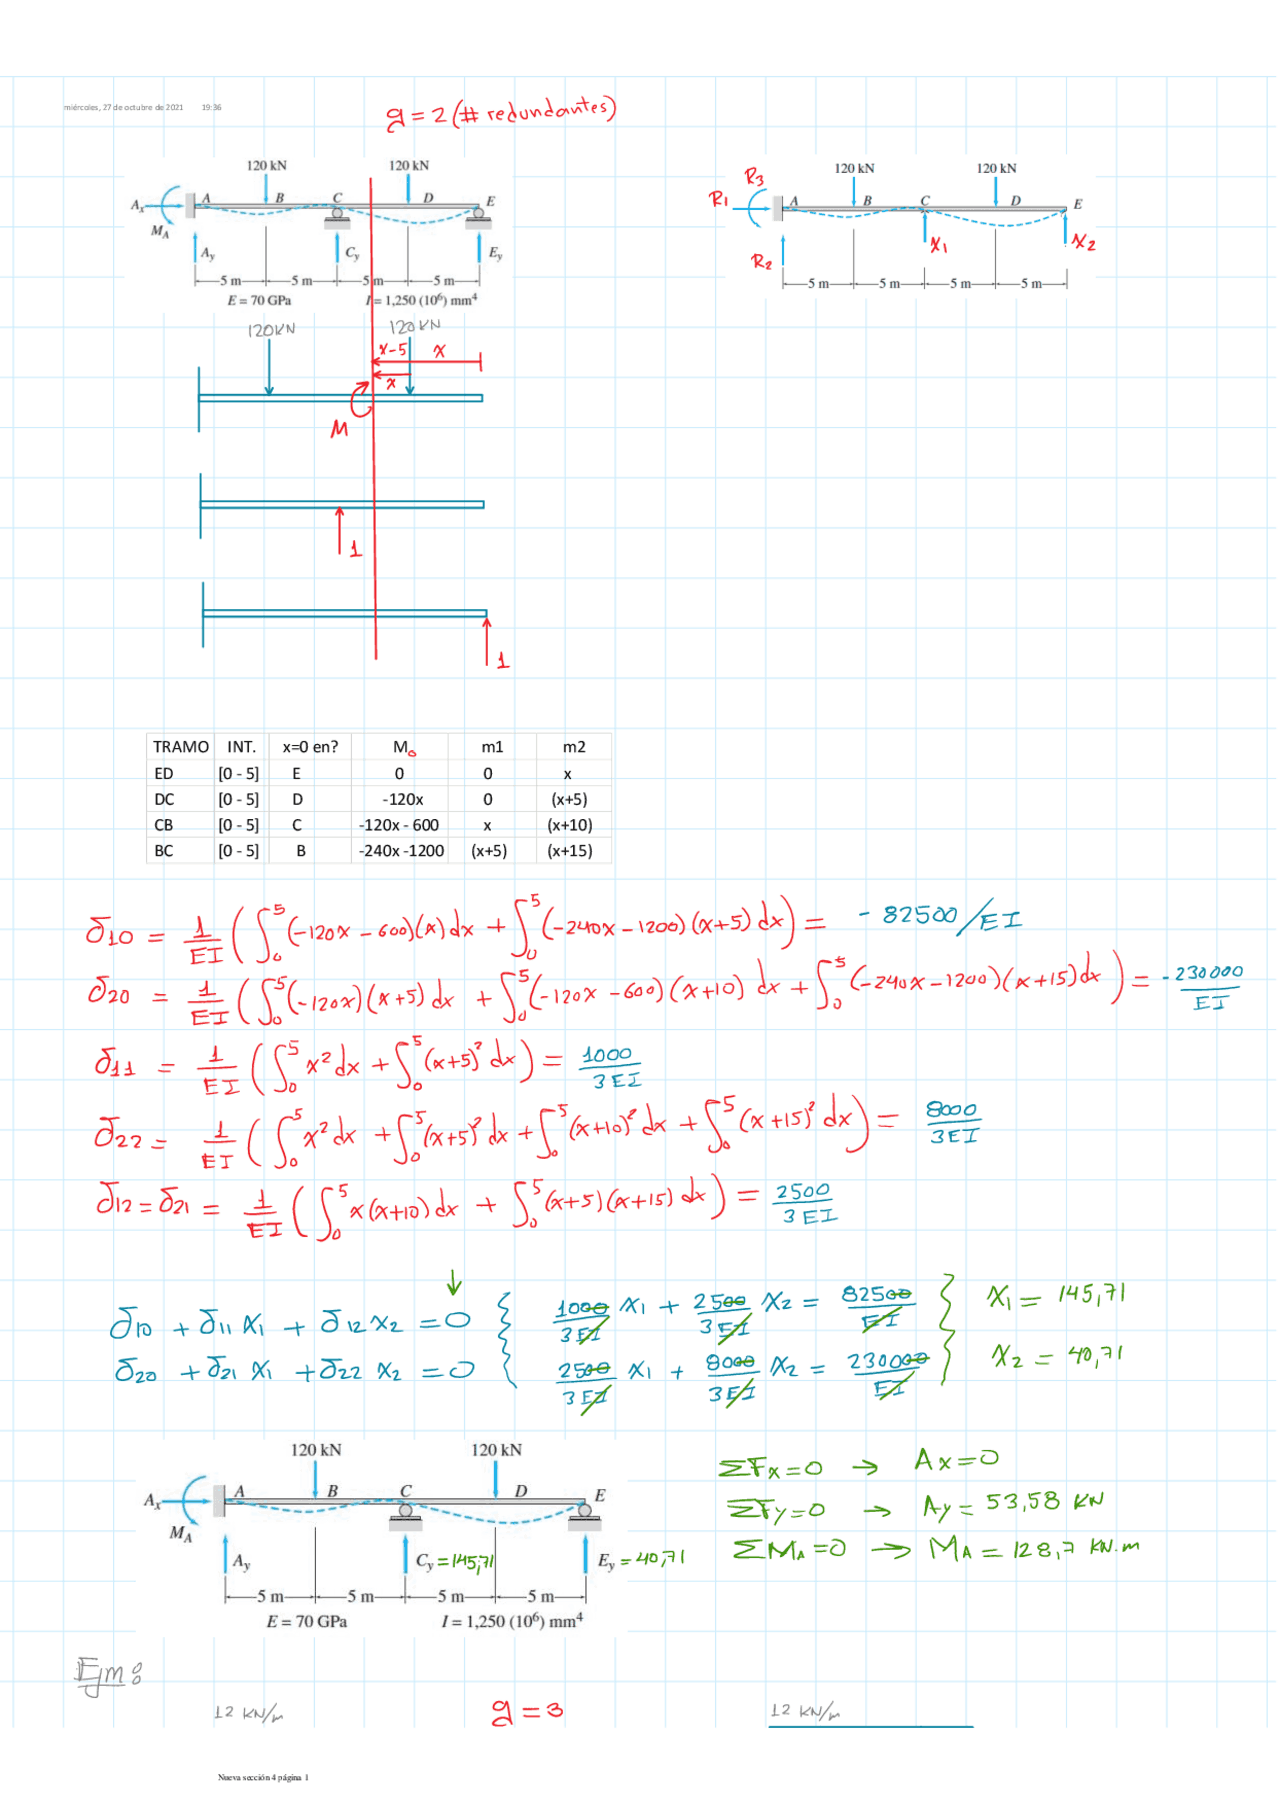 miércoles, 27 de octubre de 2021 19:36
g = 2 (# redundantes)
120 kN 120 kN
Ax A B C D E
MA
Ay Cy Ey
5 m 5 m 5 m 5 m
E = 70 GPa I = 1,250 (10⁶) mm⁴
120 kN 120 kN
R3
R1 A B C D E
R2 X1 X2
5 m 5 m 5 m 5 m
120KN 120KN
x-5 x
x
M
1
1
TRAMO INT. x=0 en? Mo m1 m2
ED [0 - 5] E 0 0 x
DC [0 - 5] D -120x 0 (x+5)
CB [0 - 5] C -120x - 600 x (x+10)
BC [0 - 5] B -240x -1200 (x+5) (x+15)
δ10 = 1/EI (∫₀⁵(-120x - 600)(x)dx + ∫₀⁵(-240x - 1200)(x+5)dx) = - 82500/EI
δ20 = 1/EI (∫₀⁵(-120x)(x+5)dx + ∫₀⁵(-120x - 600)(x+10)dx + ∫₀⁵(-240x - 1200)(x+15)dx) = -230000/EI
δ11 = 1/EI (∫₀⁵ x²dx + ∫₀⁵(x+5)²dx) = 1000/3EI
δ22 = 1/EI (∫₀⁵ x²dx + ∫₀⁵(x+5)²dx + ∫₀⁵(x+10)²dx + ∫₀⁵(x+15)²dx) = 8000/3EI
δ12 = δ21 = 1/EI (∫₀⁵ x(x+10)dx + ∫₀⁵(x+5)(x+15)dx) = 2500/3EI
δ10 + δ11 X1 + δ12 X2 = 0 { 1000/3EI X1 + 2500/3EI X2 = 82500/EI } X1 = 145,71
δ20 + δ21 X1 + δ22 X2 = 0 { 2500/3EI X1 + 8000/3EI X2 = 230000/EI } X2 = 40,71
120 kN 120 kN
Ax A B C D E
MA
Ay Cy = 145,71 Ey = 40,71
5 m 5 m 5 m 5 m
E = 70 GPa I = 1,250 (10⁶) mm⁴
ΣFx=0 → Ax=0
ΣFy=0 → Ay = 53,58 KN
ΣMA=0 → MA = 128,7 KN.m
Ejm:
12 KN/m g = 3 12 KN/m
Nueva sección 4 página 1